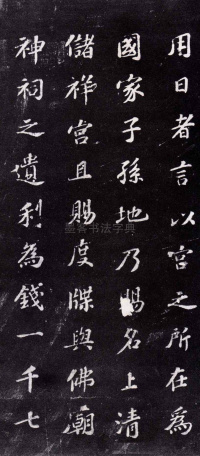 用日者言以宮之所在為
國家子孫地乃賜名上清
儲祥宮且賜度牒與佛廟
神祠之遺利為錢一千七
墨客书法字典